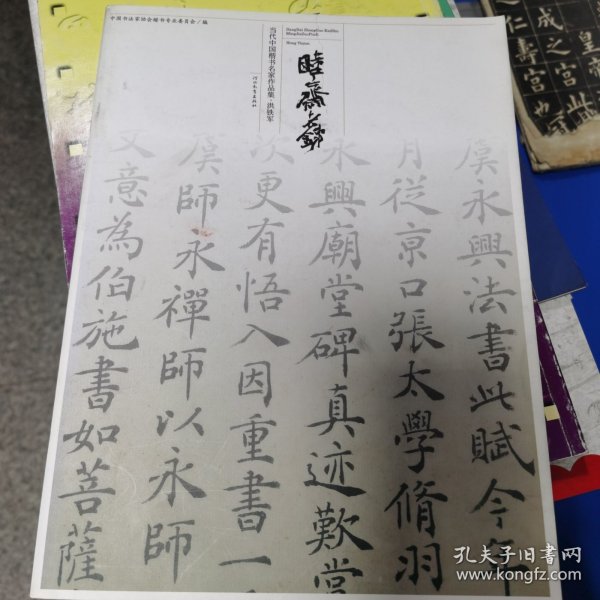 中国书法家协会楷书专业委员会/编
当代中国楷书名家作品集·洪铁军
河北教育出版社
Dangdai Zhongguo Kaishu
Mingjia Zuopinji
Hong Tiejun
睦斋
虞永興法書此賦今年
月從京口張太學脩羽
永興廟堂碑真迹歎當
次更有悟入因重書一
虞師永禪師以永師
文意為伯施書如菩薩
成之宮皇此
仁壽宮也
孔夫子旧书网
www.kongfz.com